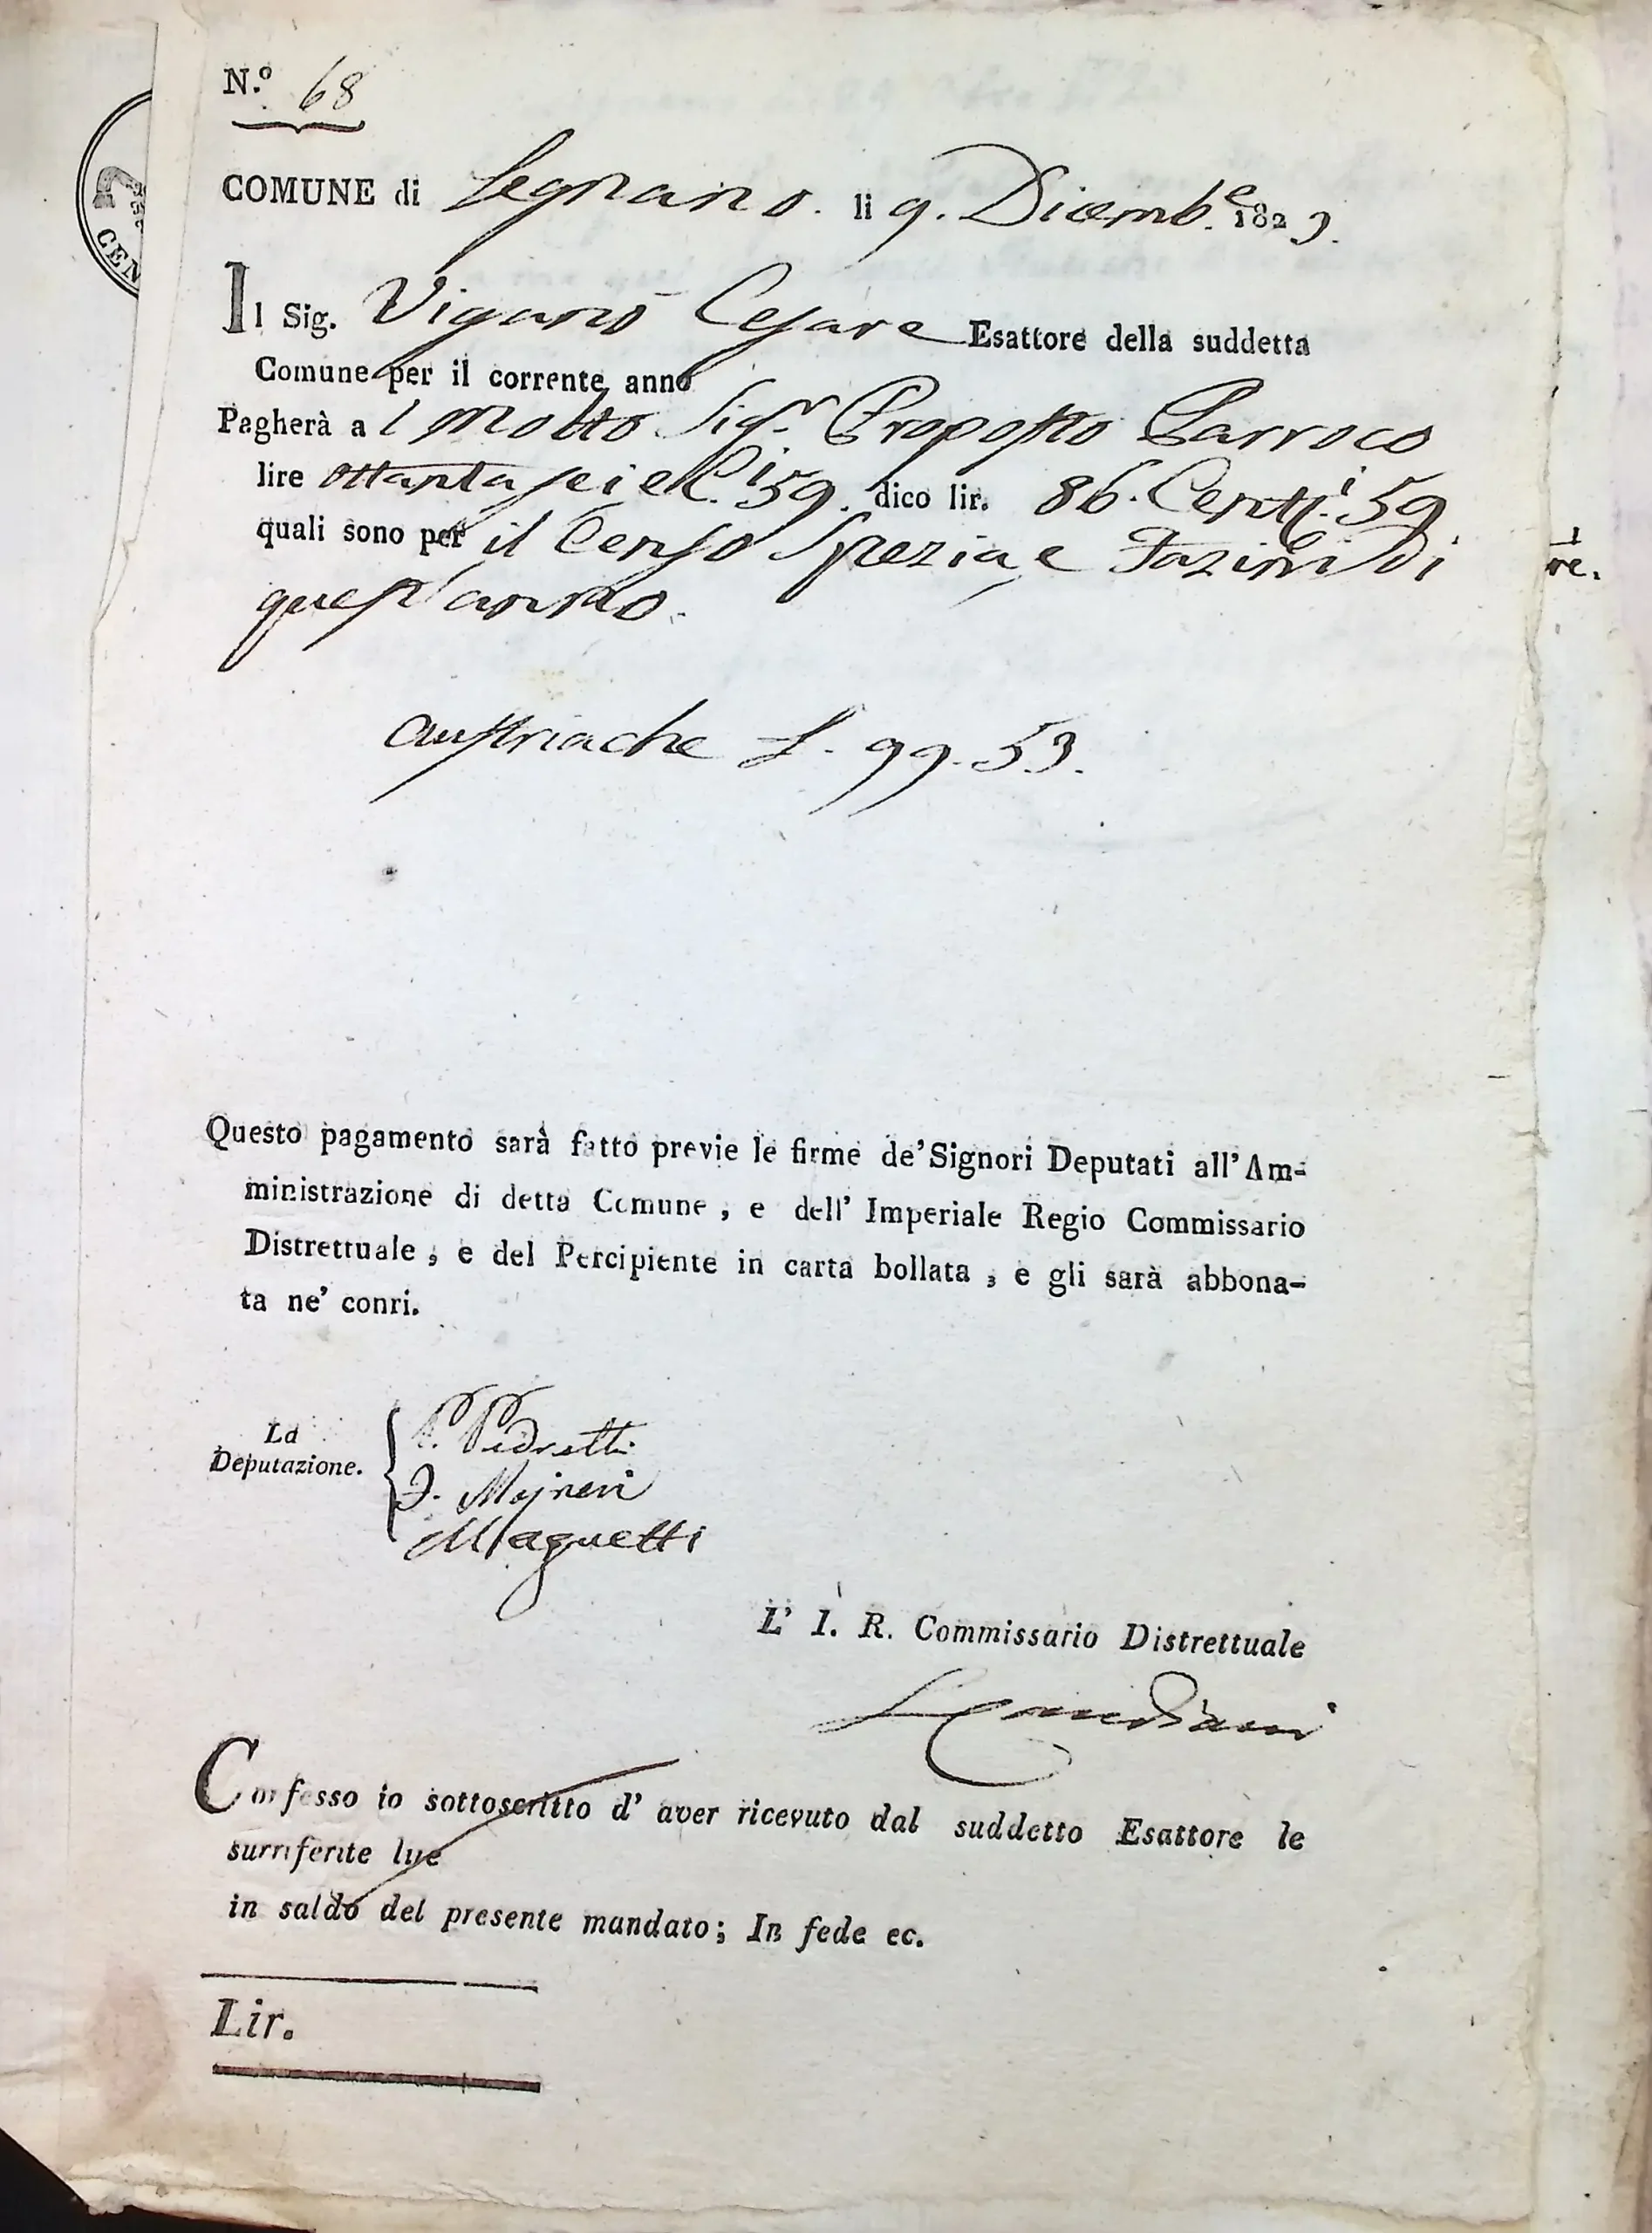 N.º 68
COMUNE di Legnano. li 9. Dicemb.e 1823.
Il Sig. Viganò Cesare Esattore della suddetta
Comune per il corrente anno
Pagherà al Molto Sig.r Proposto Parroco
lire ottanta sei e C.i 59. dico lir. 86. Cent.i 59
quali sono per il Censo Spezia e di
quest'anno.
austriache L. 99. 53.
Questo pagamento sarà fatto previe le firme de' Signori Deputati all' Am=
ministrazione di detta Comune, e dell' Imperiale Regio Commissario
Distrettuale, e del Percipiente in carta bollata, e gli sarà abbona-
ta ne' conri.
La
Deputazione.
P. Pedretti
Majneri
Magnetti
L' I. R. Commissario Distrettuale
Confesso io sottoscritto d' aver ricevuto dal suddetto Esattore le
surriferite lire
in saldo del presente mandato; In fede ec.
Lir.
CEN
re.